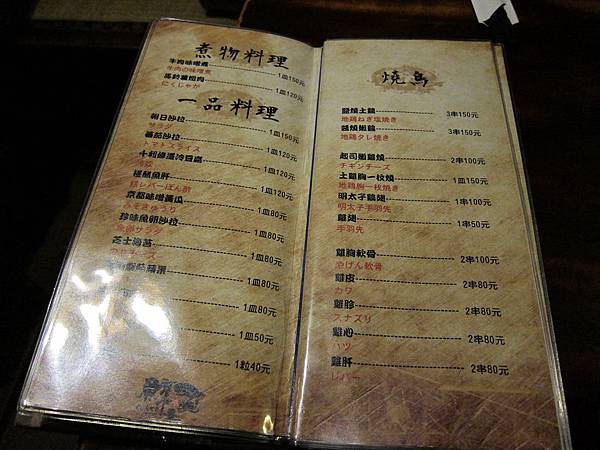 煮物料理
牛肉味噌煮 1皿150元
牛肉の味噌煮
馬鈴薯燉肉 1皿120元
にくじゃが
一品料理
朝日沙拉 1皿150元
サラダ
蕃茄沙拉 1皿120元
トマトスライス
1皿120元
1皿120元
鶏レバーぽん酢
京都味噌黃瓜 1皿80元
みそきゅうり
珍味魚卵沙拉 1皿80元
魚卵サラダ
芝士海苔 1皿80元
1皿80元
1皿50元
1粒40元
燒鳥
鹽燒土雞 3串150元
地鶏ねぎ塩焼き
醬燒嫩雞 3串150元
地鶏タレ焼き
起司嫩雞燒 2串100元
チキンチーズ
土雞胸一枚燒 1皿150元
地鶏胸一枚焼き
明太子雞翅 2串100元
明太子手羽先
雞翅 1串50元
手羽先
雞胸軟骨 2串100元
やげん軟骨
雞皮 2串80元
カワ
雞胗 2串80元
スナズリ
雞心 2串80元
ハツ
雞肝 2串80元
レバー